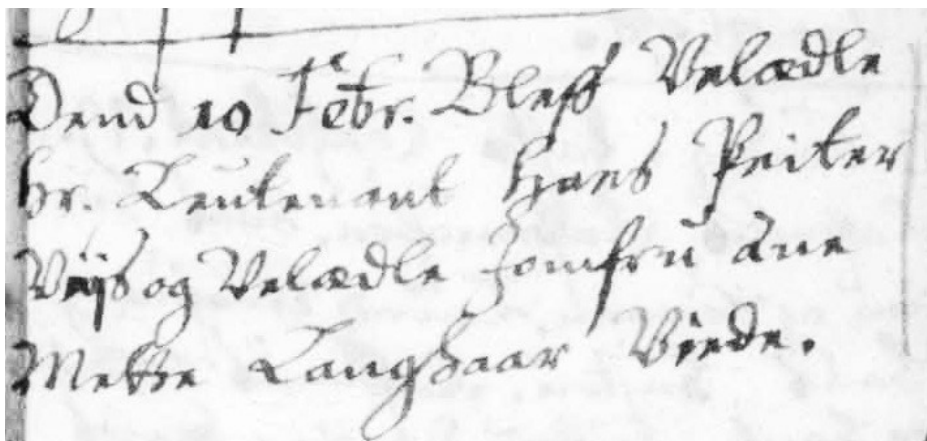 Dend 10 Febr. Bleff Velædle
hr. Leutenant Hans Peiter
Vejs og Velædle Jomfru Ane
Mette Langhaar Viede.